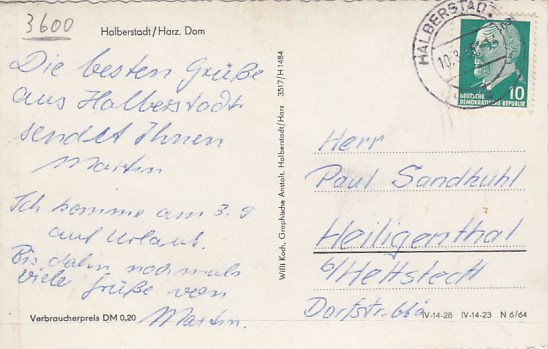 3600
Halberstadt/Harz, Dom
Die besten Grüße
aus Halberstadt
sendet Ihnen
Martin
Ich komme am 3.9
auf Urlaub.
Bis dahin nochmals
viele Grüße von
Martin.
Verbraucherpreis DM 0,20
Willi Koch, Graphische Anstalt, Halberstadt/Harz 3517/H 1484
HALBERSTADT
10
DEUTSCHE
DEMOKRATISCHE REPUBLIK
Herr
Paul Sandkuhl
Heiligenthal
b/Hettstedt
Dorfstr. 66a
IV-14-28 IV-14-23 N 6/64